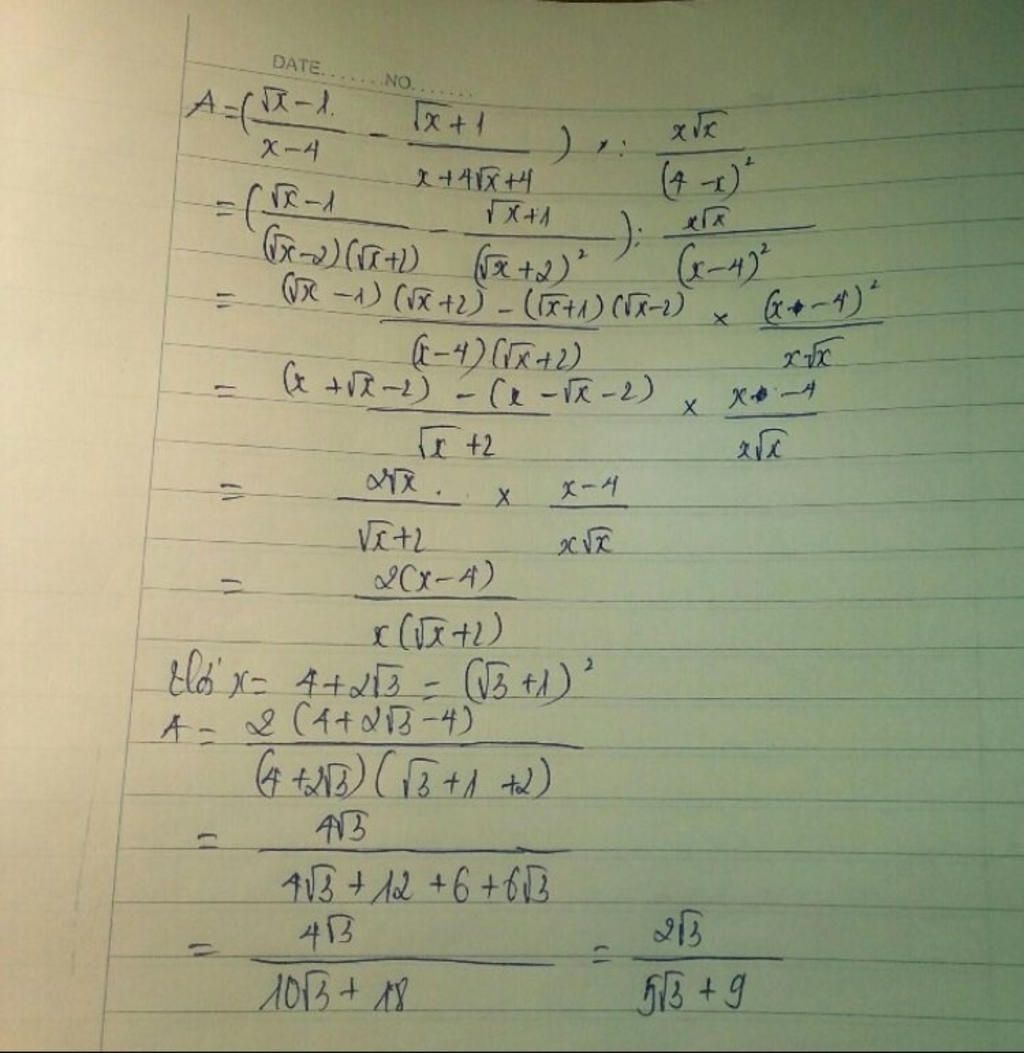 DATE.......NO.......
A = (√x - 1 / x - 4 - √x + 1 / x + 4√x + 4) : x√x / (4 - x)²
= (√x - 1 / (√x - 2)(√x + 2) - √x + 1 / (√x + 2)²) : x√x / (x - 4)²
= (√x - 1)(√x + 2) - (√x + 1)(√x - 2) / (x - 4)(√x + 2) × (x - 4)² / x√x
= (x + √x - 2) - (x - √x - 2) / √x + 2 × x - 4 / x√x
= 2√x / √x + 2 × x - 4 / x√x
= 2(x - 4) / x(√x + 2)
x = 4 + 2√3 = (√3 + 1)²
A = 2(4 + 2√3 - 4) / (4 + 2√3)(√3 + 1 + 2)
= 4√3 / 4√3 + 12 + 6 + 6√3
= 4√3 / 10√3 + 18 = 2√3 / 5√3 + 9